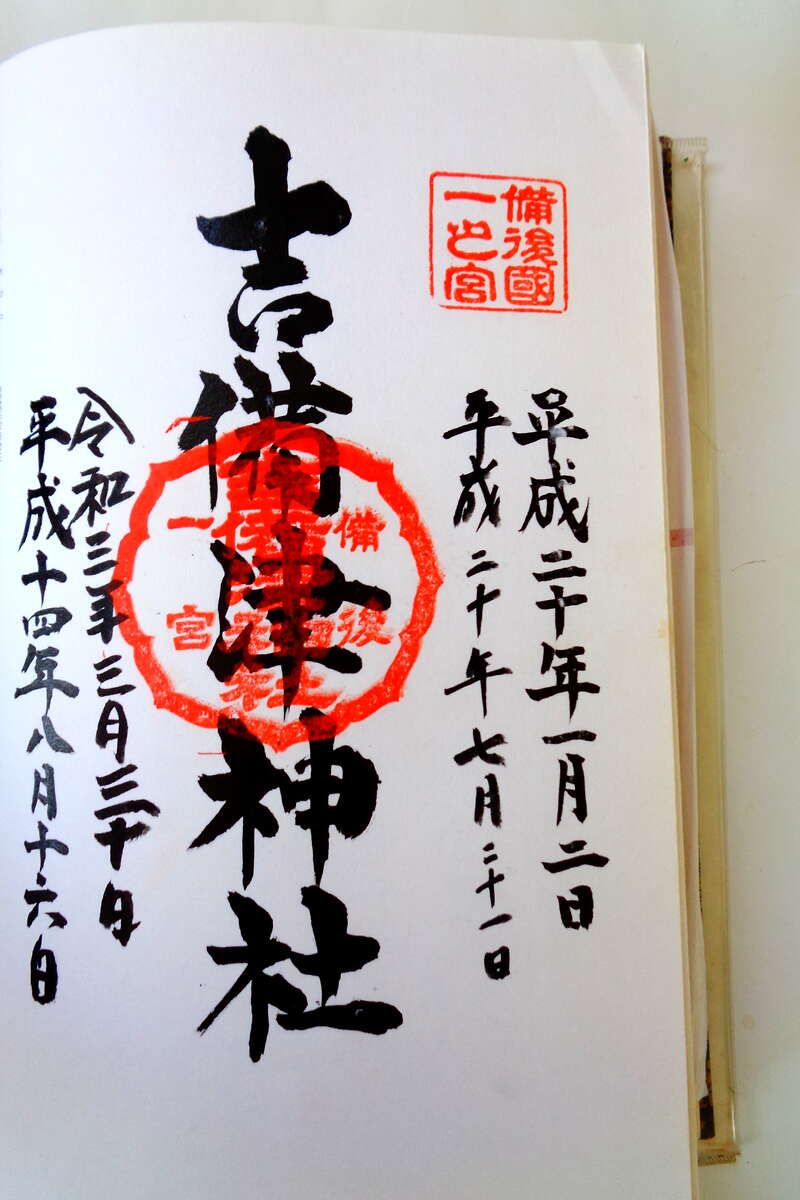 備後國
一之宮
平成二十年一月二日
平成二十年七月二十一日
吉備津神社
備後
一宮
吉備津神社
令和三年三月三十日
平成十四年八月十六日